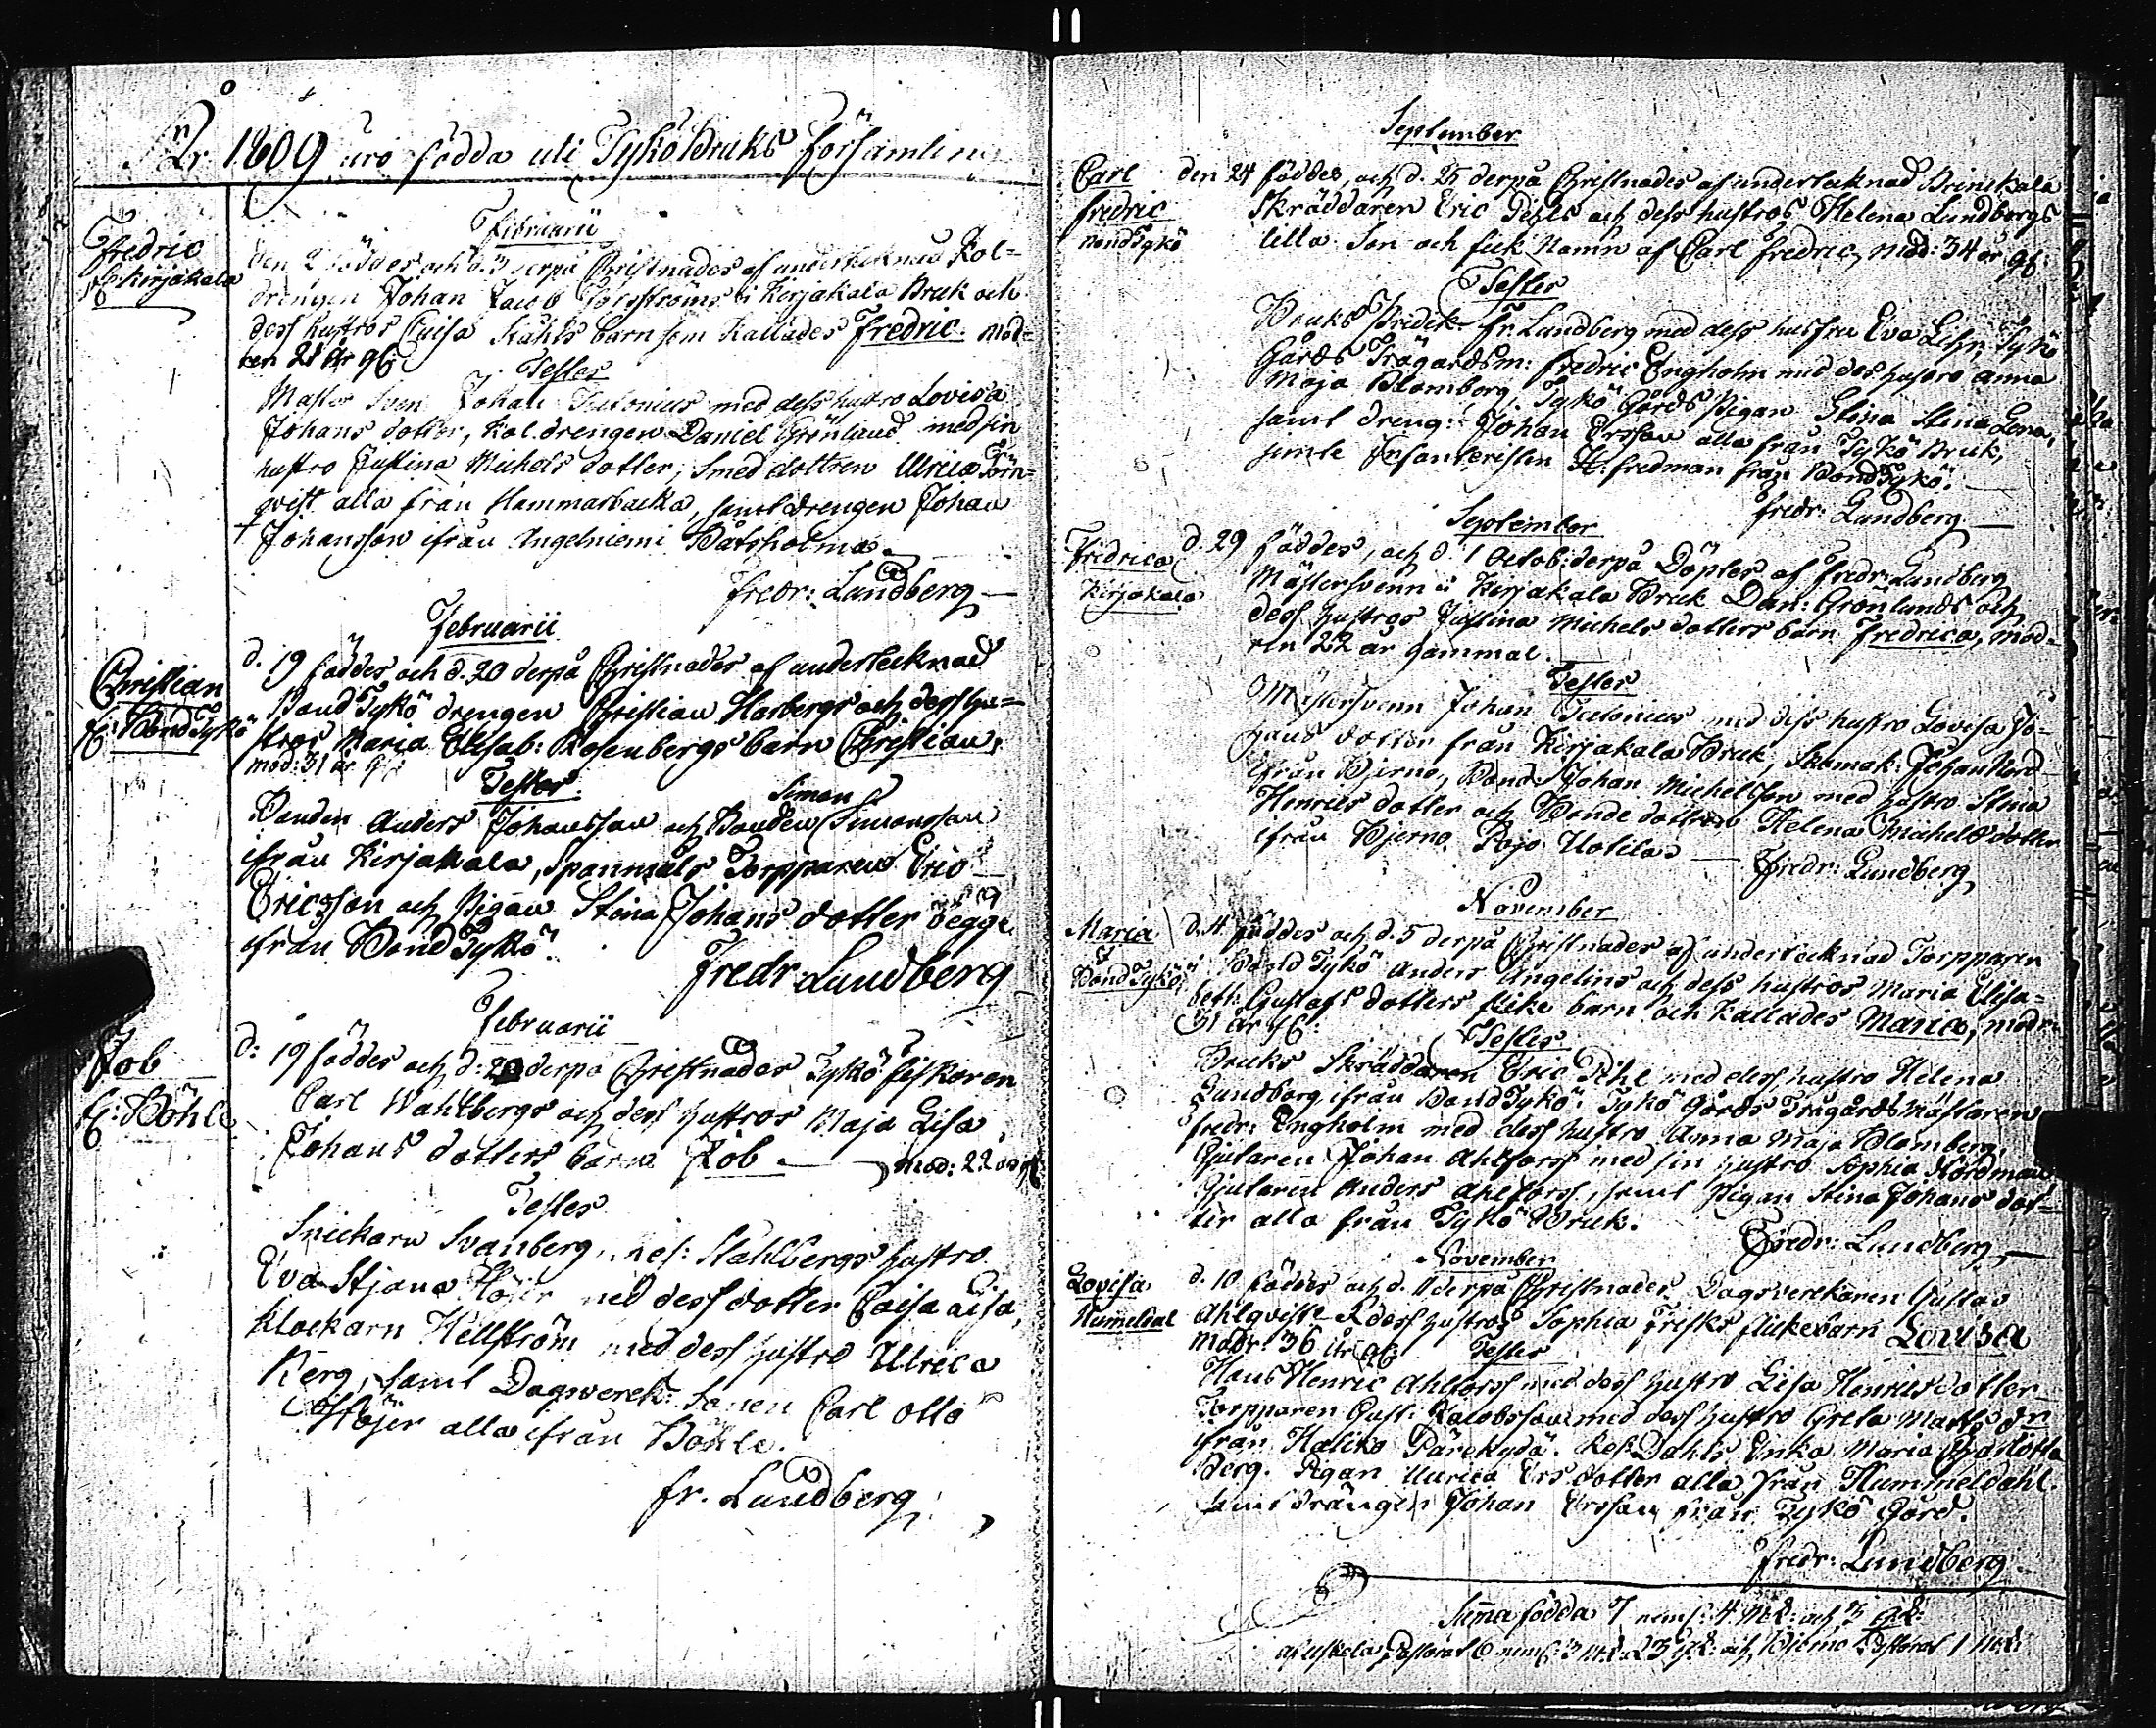 År 1809 äro födda uti Tykö Bruks församling
Februarii
Fredric
f: Kirjakala
den 2 föddes och d. 3 derpå Christnades af undertecknad Kol=
drengen Johan Jacob Forsströms i Kirjakala Bruk och
dess hustros Caisa Ståhls barn som kallades Fredric. mod=
ren 28 år gl:
Testes
Mäster Sven Johan Telonius med dess hustro Lovisa
Johans dotter, Kol.drengen Daniel Grönlund med sin
hustro Justina Michels dotter; Smed dottren Ulrica Törn=
qvist alla från Hammarbacka, samt drengen Johan
Johansson ifrån Angelniemi Båtsholma.
Fredr: Lundberg
Februarii
Christian
f: Bond Tykö
d. 19 föddes och d. 20 derpå Christnades af undertecknad
Bond Tykö drengen Christian Harbergs och dess hu=
stros Maria Elisab: Rosenbergs barn Christian,
mod: 31 år gl:
Testes
Bonden Anders Johansson och Bonden Simon Simonsson
ifrån Kirjakala, Spanmåls Torpparen Eric
Ericsson och Pigan Stina Johans dotter begge
ifrån Bond Tykö.
Fredr Lundberg
Februarii
Job
f: Böhle
d: 19 föddes och d: 20 derpå Christnades Tykö fiskaren
Carl Wahlbergs och dess hustros Maja Lisa
Johans dotters barn Job. mod: 22 år gl:
Testes
Snickarn Svanberg, Ref: Ståhlbergs hustro
Eva Stjana Höjer med dess dotter Caisa Lisa,
Klockarn Hellström med dess hustro Ulrica
Berg, samt Dagwerck: Sonen Carl Otto
Höjer alla ifrån Böhle.
fr. Lundberg
September
Carl
Fredric
Bond Tykö
den 24 föddes, och d. 25 derpå Christnades af undertecknad Brinckala
Skräddaren Eric Pihls och dess hustros Helena Lundbergs
lilla Son och fick Namn af Carl Fredric, Mod: 34 år gl:
Testes
Bruks Predik. Fr. Lundberg med dess husfru Eva Lehr, Tykö
Gårds Trägårdsm: Fredric Engholm med des hustro Anna
Maja Blomberg, Tykö Gårds Pigan Stina Stina Lena,
samt dreng: Johan Ersson alla från Tykö Bruk,
simte Infanteristen H. Fredman från Bond Tykö.
Fredr: Lundberg
September
Fredrica
Kirjakala
d. 29 föddes, och d. 1 Octob: derpå Döptes af Fredr: Lundberg
Mästersvenn i Kirjakala Bruk Dan: Grönlunds och
dess hustros Justina Michels dotters barn Fredrica, mod=
ren 22 år gammal.
Testes
Mästersvenn Johan Telonius med dess hustro Lovisa Jo=
hans dotter från Kirjakala Bruk, Skomak: Johan Nord
ifrån Bjerno, Bond: Johan Michelsson med hustro Stina
Henrics dotter och Bonde dottren Helena Michels dotter
ifrån Bjerno Pojo Uotila
Fredr: Lundberg
November
Maria
f
Bond Tykö
d. 4 föddes och d. 5 derpå Christnades af undertecknad Torpparen
i Bond Tykö Anders Angelins och dess hustros Maria Elisa=
beth Gustafs dotters flicke barn och kallades Maria, modr:
31 år gl:
Testes
Bruks Skräddaren Eric Pihl med dess hustro Helena
Lundberg ifrån Bond Tykö. Tykö Gårds Trägårds Mästaren
Fredr: Engholm med dess hustro Anna Maja Blomberg,
Gjutaren Johan Ahlforss med sin hustro Sophia Nordman
Gjutaren Anders Ahlforss, samt Pigan Stina Johans dot=
ter alla från Tykö Bruk.
Fredr: Lundberg
November
Lovisa
Humeldal
d. 10 föddes och d. 11 derpå Christnades Dagsverckaren Gustav
Ahlqvists & dess hustros Sophia Frisks flickebarn Lovisa
Modr: 36 år gl:
Testes
Hans Henric Ahlforss med dess hustro Lisa Henricsdotter
Torpparen Gust: Jacobsson med dess hustro Greta Matts dr
ifrån Haliko Pärekydä. Ref. Dahls Enka Maria Charlotta
Berg. Pigan Ulrica Ersdotter alla från Hummeldahl.
samt drängen Johan Ersson från Tykö Gård.
Fredr: Lundberg
Suma födda 7 neml: 4 Mk: och 3 qk:
af Uskela Pastorat 6 neml: 3 mk: & 3 qk: och Bjerno Pastorat 1 mk: